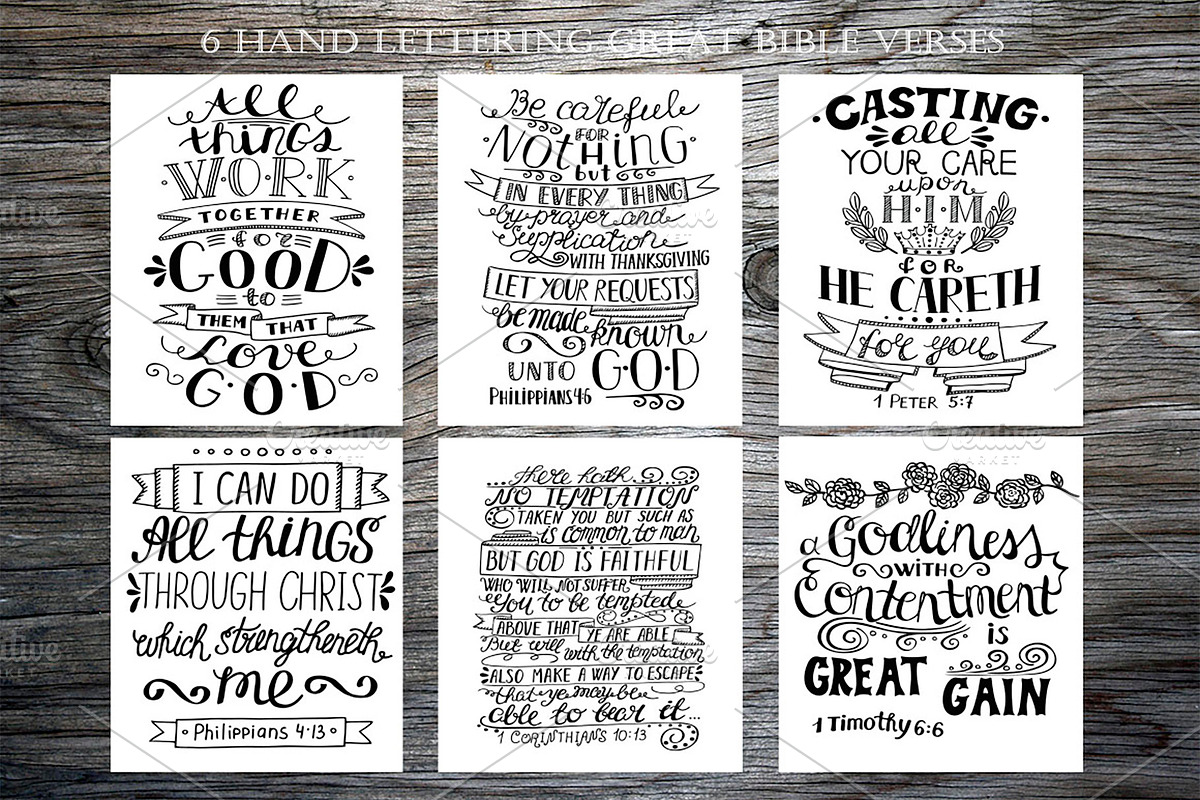 6 HAND LETTERING GREAT BIBLE VERSES
All
things
WORK
TOGETHER
for
GOOD
to
THEM THAT
Love
G·O·D
Be careful
FOR
NOtHiNG
but
IN EVERY THING
by prayer and
supplication
WITH THANKSGIVING
LET YOUR REQUESTS
be made known
UNTO G·O·D
Philippians 4:6
·CASTING·
all
YOUR CARE
upon
HIM
for
HE CARETH
for you
1 PETER 5:7
I CAN DO
All things
THROUGH CHRIST
which strengtheneth
me
Philippians 4:13
there hath
NO TEMPTATION
TAKEN YOU BUT SUCH AS
is common to man
BUT GOD IS FAITHFUL
WHO WILL NOT SUFFER
You to be tempted
ABOVE THAT YE ARE ABLE
But will with the temptation
ALSO MAKE A WAY TO ESCAPE
that ye may be
able to bear it...
1 CORINTHIANS 10:13
a Godliness
WITH
Contentment
is
GREAT
GAIN
1 Timothy 6:6
Creative
MARKET
Creative
MARKET
Creative
MARKET
Creative
MARKET